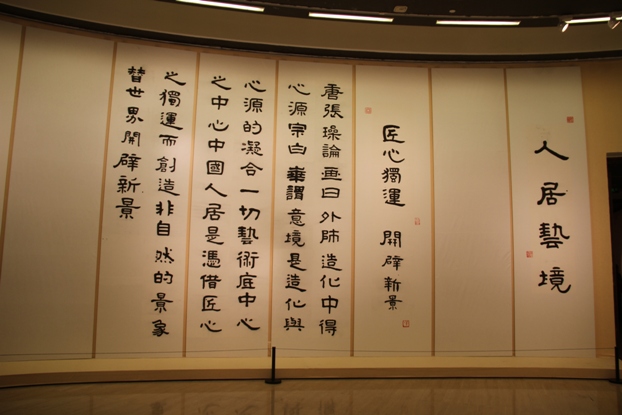 人居藝境
匠心獨運 開辟新景
唐張璪論画曰外師造化中得
心源宗白華謂意境是造化與
心源的凝合一切藝術底中心
之中心中國人居是憑借匠心
之獨運而創造非自然的景象
替世界開辟新景